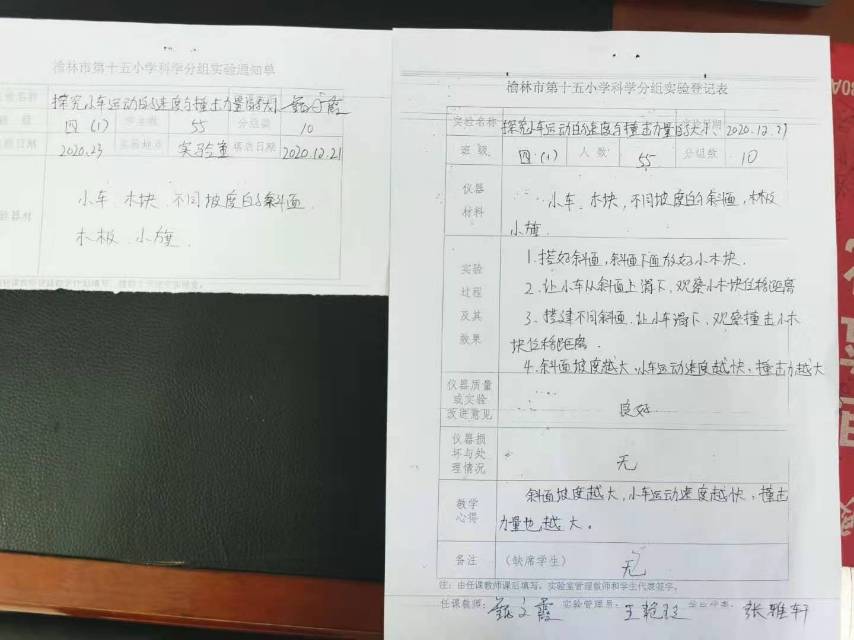 榆林市第十五小学科学分组实验通知单
探究小车运动的速度与撞击力量的大小
四(1) 学生数 55 分组数 10
2020.23 实验地点 实验室 填表日期 2020.12.21
小车、木块、不同坡度的斜面、
木板、小旗
榆林市第十五小学科学分组实验登记表
实验名称 探究小车运动的速度与撞击力量的大小 2020.12.23
班级 四(1) 人数 55 分组数 10
仪器材料 小车、木块,不同坡度的斜面,木板
小旗
实验过程及其效果
1.搭好斜面,斜面下面放好小木块.
2.让小车从斜面上滑下,观察小木块位移距离
3.搭建不同斜面.让小车滑下,观察撞击小木
块位移距离.
4.斜面坡度越大,小车运动速度越快,撞击力越大
仪器质量或实验改进意见 良好
仪器损坏与处理情况 无
教学心得 斜面坡度越大,小车运动速度越快,撞击
力量也越大。
备注 (缺席学生) 无
注:由任课教师课后填写,实验室管理教师和学生代表签字。
任课教师: 实验管理员: 张雅轩